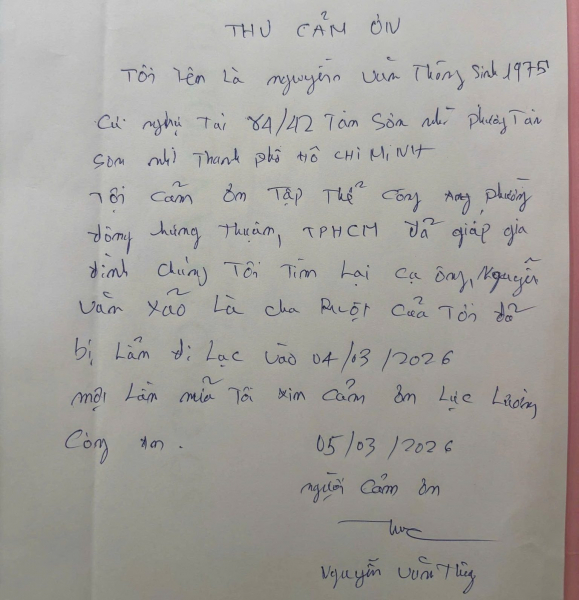 THƯ CẢM ƠN
Tôi tên là nguyễn văn Thông Sinh 1975
Cư nghụ Tại 84/42 Tân Sơn nhì phường Tân
Sơn nhì Thanh phố Hồ CHÍ MINH
Tôi Cảm ơn Tập Thể Công an phường
đông hưng thuận, TPHCM đã giúp gia
đình chúng Tôi Tìm lại cụ ông, Nguyễn
văn xão Là cha Ruột Của Tôi đã
bị Lẫn đi Lạc vào 04/03/2026
một Lần nữa Tôi xin Cảm ơn Lực Lượng
Công an.
05/03/2026
người Cảm ơn
Nguyễn văn Thông